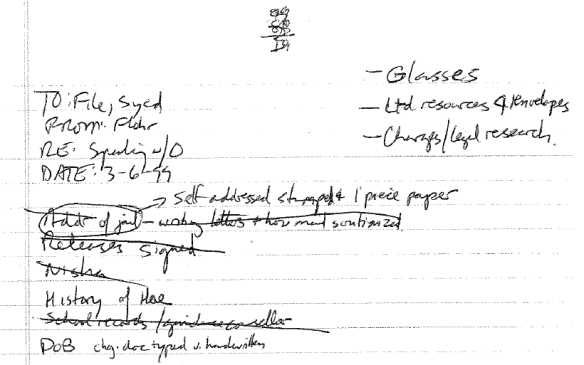 - Glasses
- Ltd resources & envelopes
- Charges/legal research.
TO: File, Syed
FROM: Flohr
RE: Speaking w/O
DATE: 3-6-99
→ Self addressed stamped & 1 piece paper
Addr of jail - letters & how mail scrutinized
Releases signed
Nisha
History of
School records / guidance counsellor
DOB chg. doc typed v. handwritten